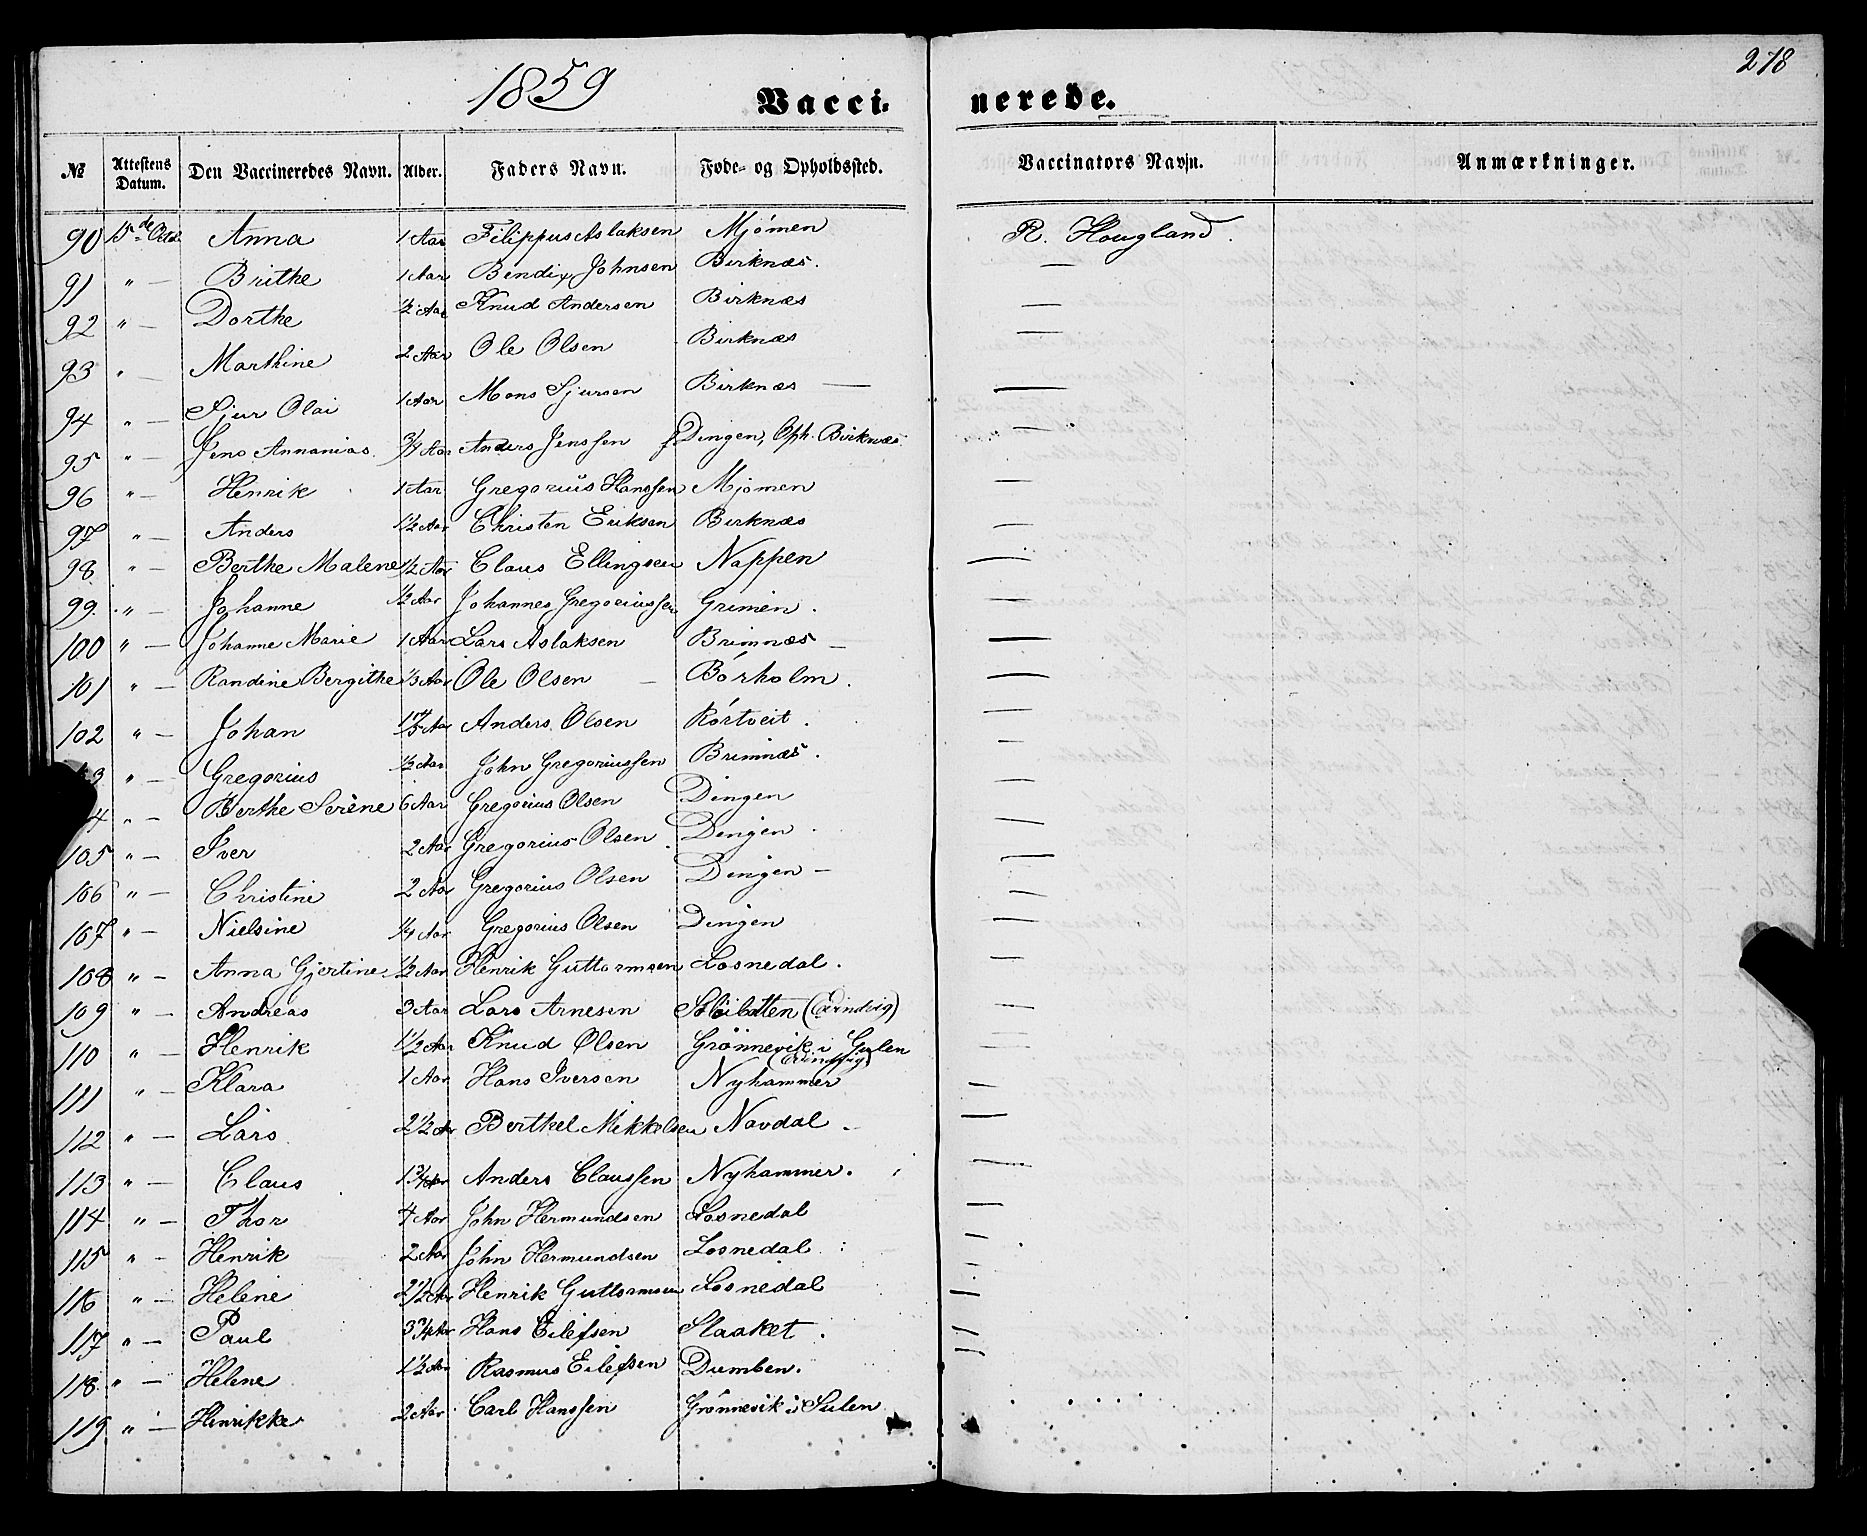 1859 Vacci- nerede. 278
№ Attestens Datum. Den Vaccineredes Navn. Alder. Faders Navn. Føde- og Opholdssted. Vaccinators Navn. Anmærkninger.
90 15de Octb Anna 1 Aar Filippus Aslaksen Mjömen R. Hougland.
91 " — Brithe 1 Aar Bendix Johnsen Birknæs. —
92 " — Dorthe ½ Aar Knud Andersen Birknæs —
93 " — Marthine 2 Aar Ole Olsen Birknæs —
94 " — Sjur Olai 1 Aar Mons Sjursen Birknæs — —
95 " — Jens Annanias ¾ Aar Anders Jenssen f Dingen, Oph. Birknæs —
96 " — Henrik 1 Aar Gregorius Hanssen Mjömen —
97 " — Anders 1½ Aar Christen Eriksen Birknæs —
98 " — Berthe Malene 1½ Aar Claus Ellingsen Nappen —
99. " — Johanne ½ Aar Johannes Gregoriussen Grimen. —
100 " — Johanne Marie 1 Aar Lars Aslaksen Brimnæs — —
101 " — Randine Bergithe ⅓ Aar Ole Olsen — Börholm. —
102 " — Johan Aar Anders Olsen Körtveit. —
3 " — Gregorius ½ Aar John Gregoriussen Brimnæs. —
4 " — Berthe Serine 6 Aar Gregorius Olsen Dingen —
105 " — Iver 2 Aar Gregorius Olsen. Dingen. —
106 " — Christine 2 Aar Gregorius Olsen Dingen — —
107 " — Nielsine ¼ Aar Gregorius Olsen Dingen —
108 " — Anna Gjertine ½ Aar Henrik Guttormsen Losnedal. —
109 " — Andreas 3 Aar Lars Arnesen (Evindvig) —
110 " — Henrik 1½ Aar Knud Olsen Grönnevik i Gulen (Evindvig) —
111 " — Klara 1 Aar Hans Iversen Nyhammer —
112 " — Lars 2½ Aar Berthel Mikkelsen Novdal —
113 " — Claus 1¾ Aar Anders Claussen Nyhammer. —
114 " — Thor 4 Aar John Hermundsen Losnedal —
115 " — Henrik 2 Aar John Hermundsen Losnedal —
116 " — Helene 2½ Aar Henrik Guttormsen Losnedal —
117 " — Paul 3¾ Aar Hans Eilefsen Slaaket. —
118. " — Helene 1½ Aar Rasmus Eilefsen Dumben. —
119. " — Henrikke 2 Aar Carl Hanssen Grönnevik i Sulen